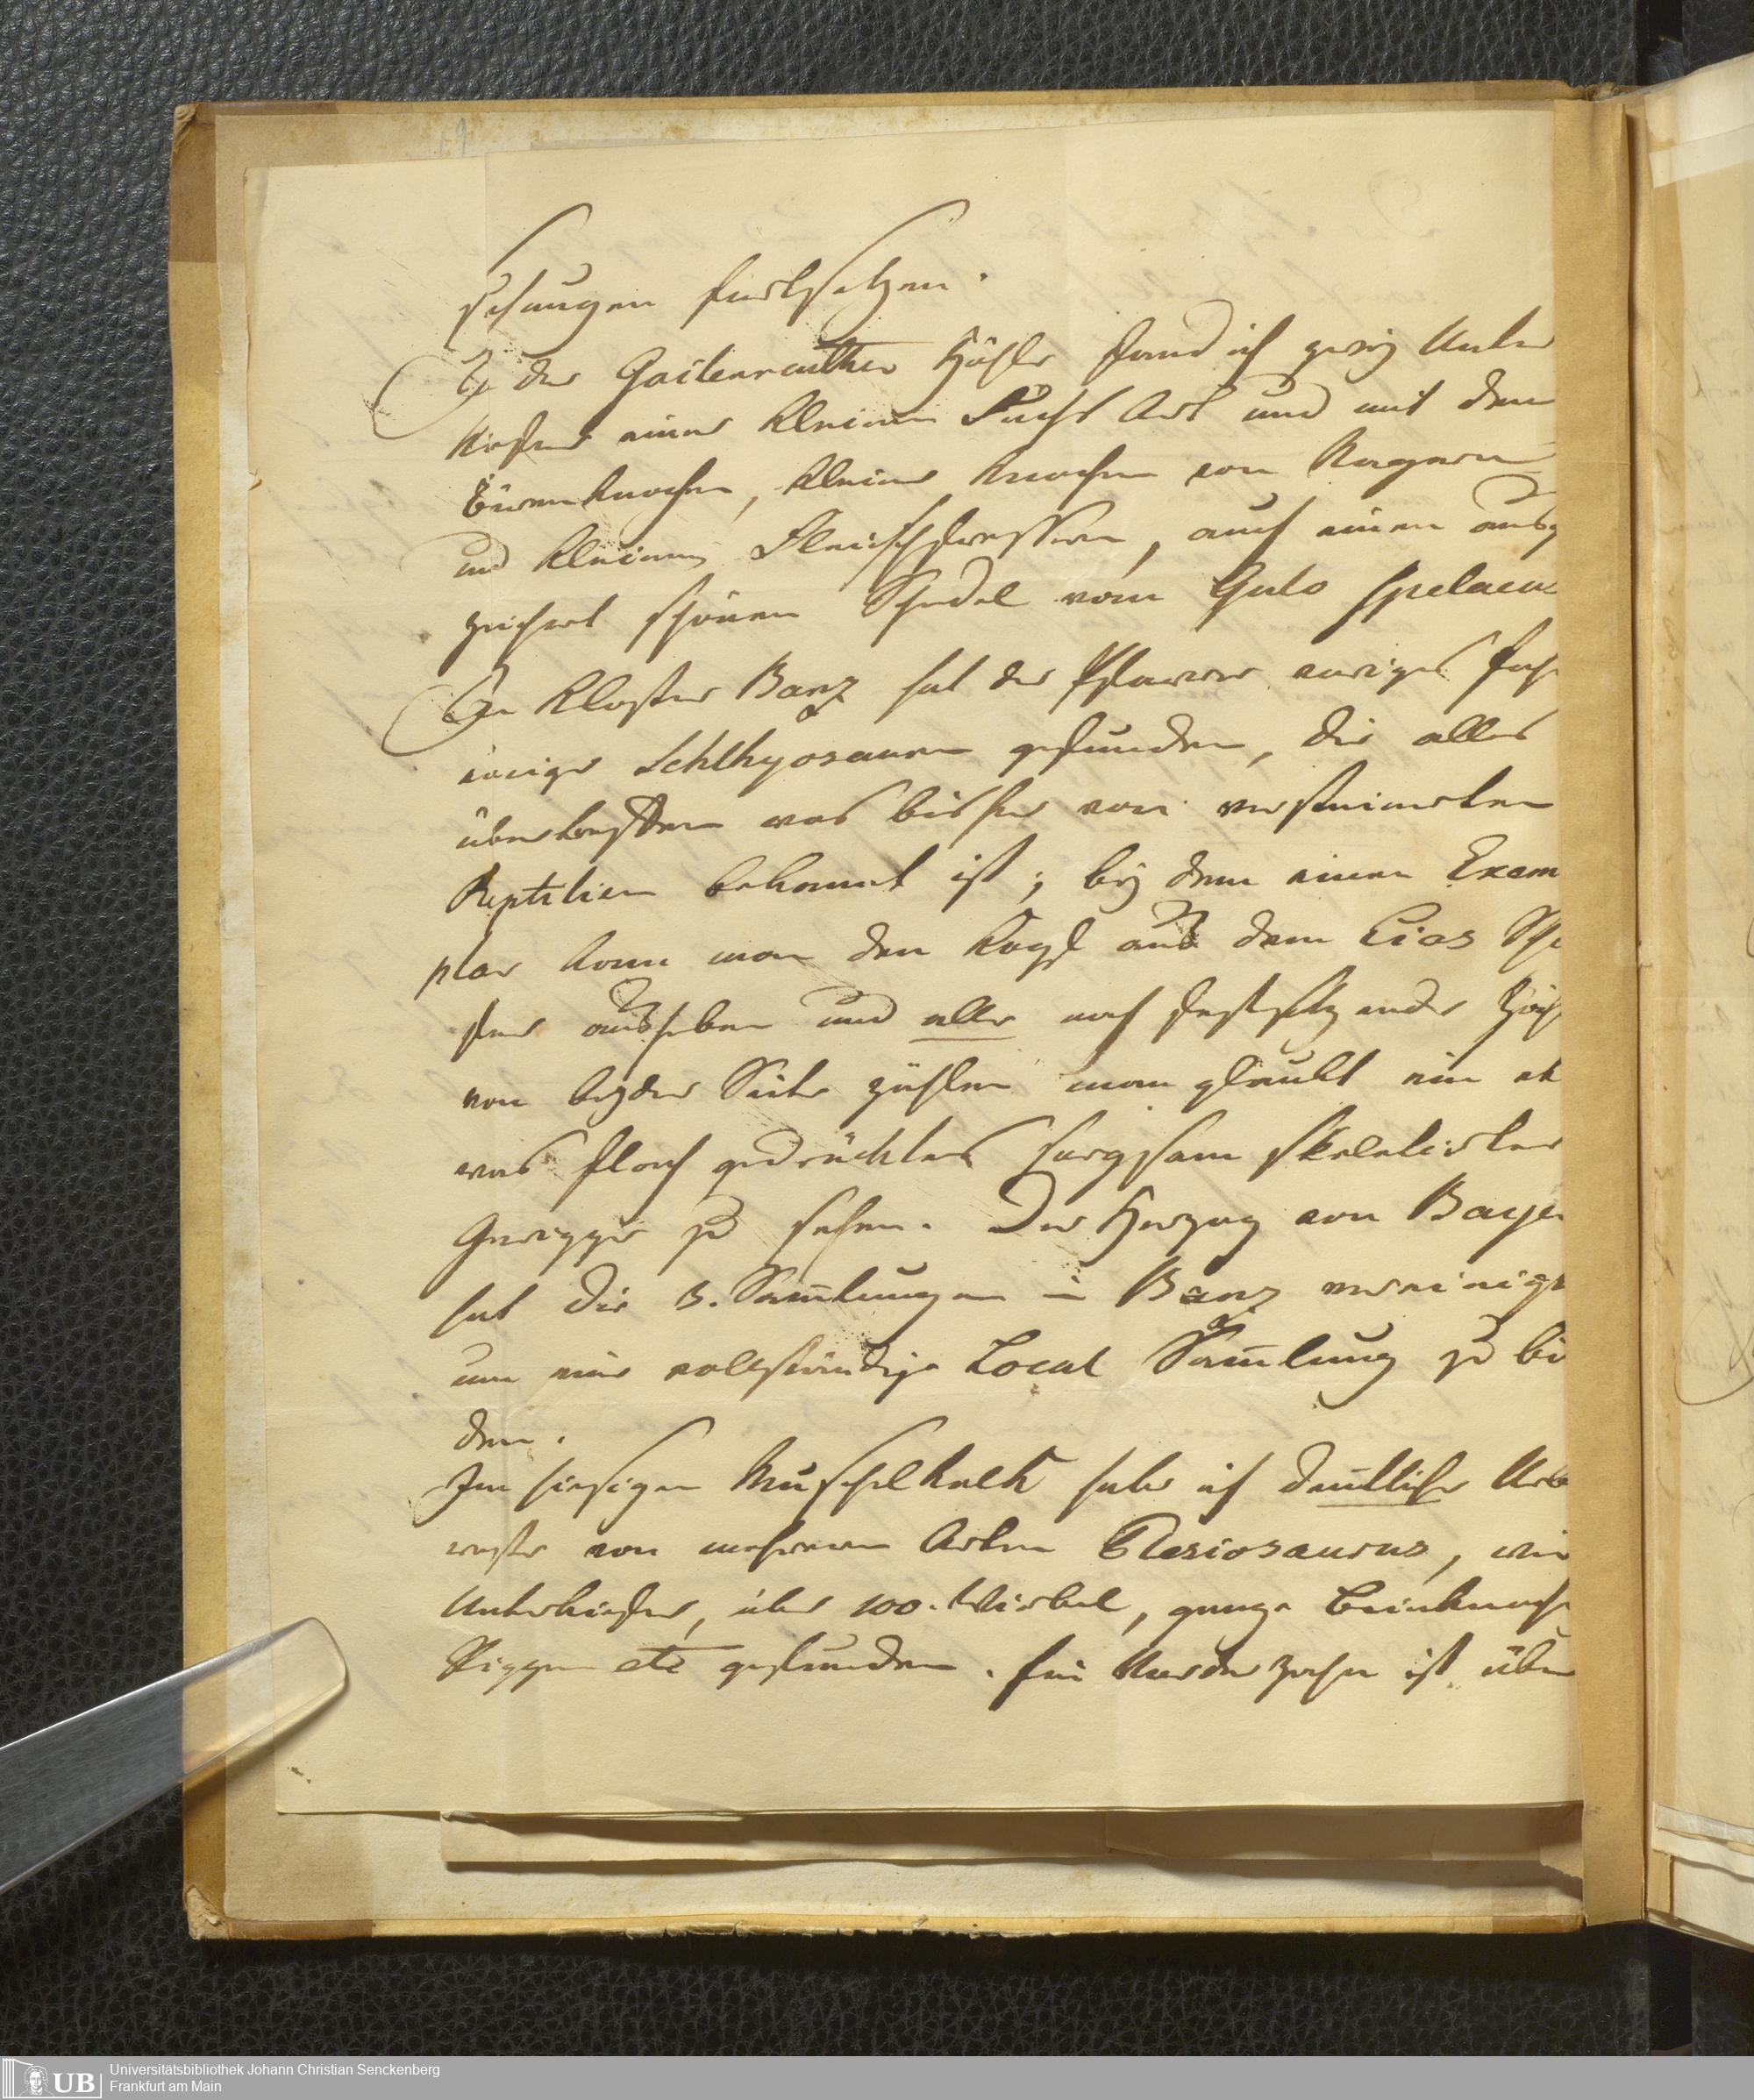 schungen fortsetzen.
In der Gailenreuther Höhle fand ich zwey Unter
kiefer einer kleinen Fuchs Art und mit den
Bärenknochen, kleine Knochen von Nagern
und kleinen Fleischfressern, auch einen ausge
zeichnet schönen Schedel vom Gulo spelaeus
In Kloster Banz hat der Pfarrer
einige Ichthyosauren gefunden, die alles
übertreffen was bisher von versteinerten
Reptilien bekannt ist; bey dem einen Exem
plar kann man den Kopf aus dem Lias Schi
fer ausheben und alle noch festsitzende Zäh
von beyder Seite zählen man glaubt ein et
was flach gedrücktes sorgsam skeletirtes
Gerippe zu sehen. Der Herzog von Bayer
hat die 3. Sam̄lungen in Banz vereinigt
um eine vollständige Local Sam̄lung zu bil
den.
Im hiesigen Muschelkalk habe ich deutliche Ueb
reste von mehreren Arten Plesiosaurus, wie
Unterkiefer, über 100. Wirbel, ganze Beinknoche
Rippen etc gefunden. Ein Vorderzahn ist über
Universitätsbibliothek Johann Christian Senckenberg
Frankfurt am Main
UB